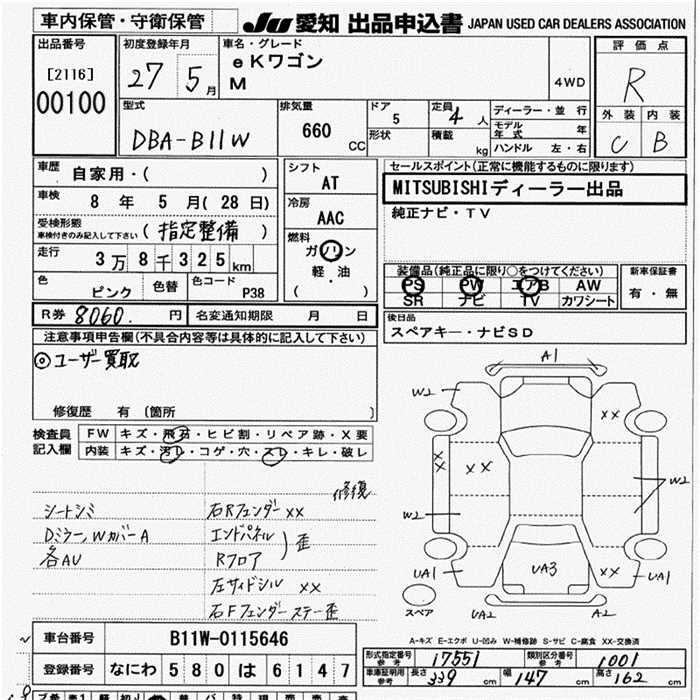 車内保管・守衛保管
JU 愛知 出品申込書 JAPAN USED CAR DEALERS ASSOCIATION
出品番号
[2116]
00100
初度登録年月
27 5月
車名・グレード
eKワゴン
M
4WD
評価点
R
外装 内装
C B
型式
DBA-B11W
排気量
660 CC
ドア
5
形状
定員
4 人
積載
kg
ディーラー・並行
モデル年式 年
ハンドル 左・右
車歴
自家用・( )
車検
8 年 5 月(28日)
受検形態
車検付きのみ記入して下さい
(指定整備)
走行
3万8千325km
色
ピンク
色替
色コード
P38
シフト
AT
冷房
AAC
燃料
ガソリン
軽・油
( )
セールスポイント(正常に機能するものに限ります)
MITSUBISHIディーラー出品
純正ナビ・TV
装備品(純正品に限り○をつけてください)
PS PW エアB AW
SR ナビ TV カワシート
新車保証書
有・無
R券 8060. 円
名変通知期限 月 日
後日品
スペアキー・ナビSD
注意事項申告欄(不具合内容等は具体的に記入して下さい)
◎ユーザー買取
修復歴 有〔箇所 〕
検査員記入欄
FW キズ・飛石・ヒビ割・リペア跡・X要
内装 キズ・汚レ・コゲ・穴・スレ・キレ・破レ
修復
シートシミ
Dミラー,WカバーA
各AU
右Rフェンダー XX
エンドパネル
Rフロア
)歪
左サイドシル XX
右Fフェンダーステー歪
A1
W2
XX
XX
XX
W2
W2
UA1
UA3
XX
UA1
スペア
UA2
A2
A-キズ E-エクボ U-凹み W-補修跡 S-サビ C-腐食 XX-交換済
車台番号
B11W-0115646
登録番号
なにわ 580 は 6147
形式指定番号
参考
17551
類別区分番号
参考
1001
車庫証明用
参考
長さ 339 cm
幅 147 cm
高さ 162 cm